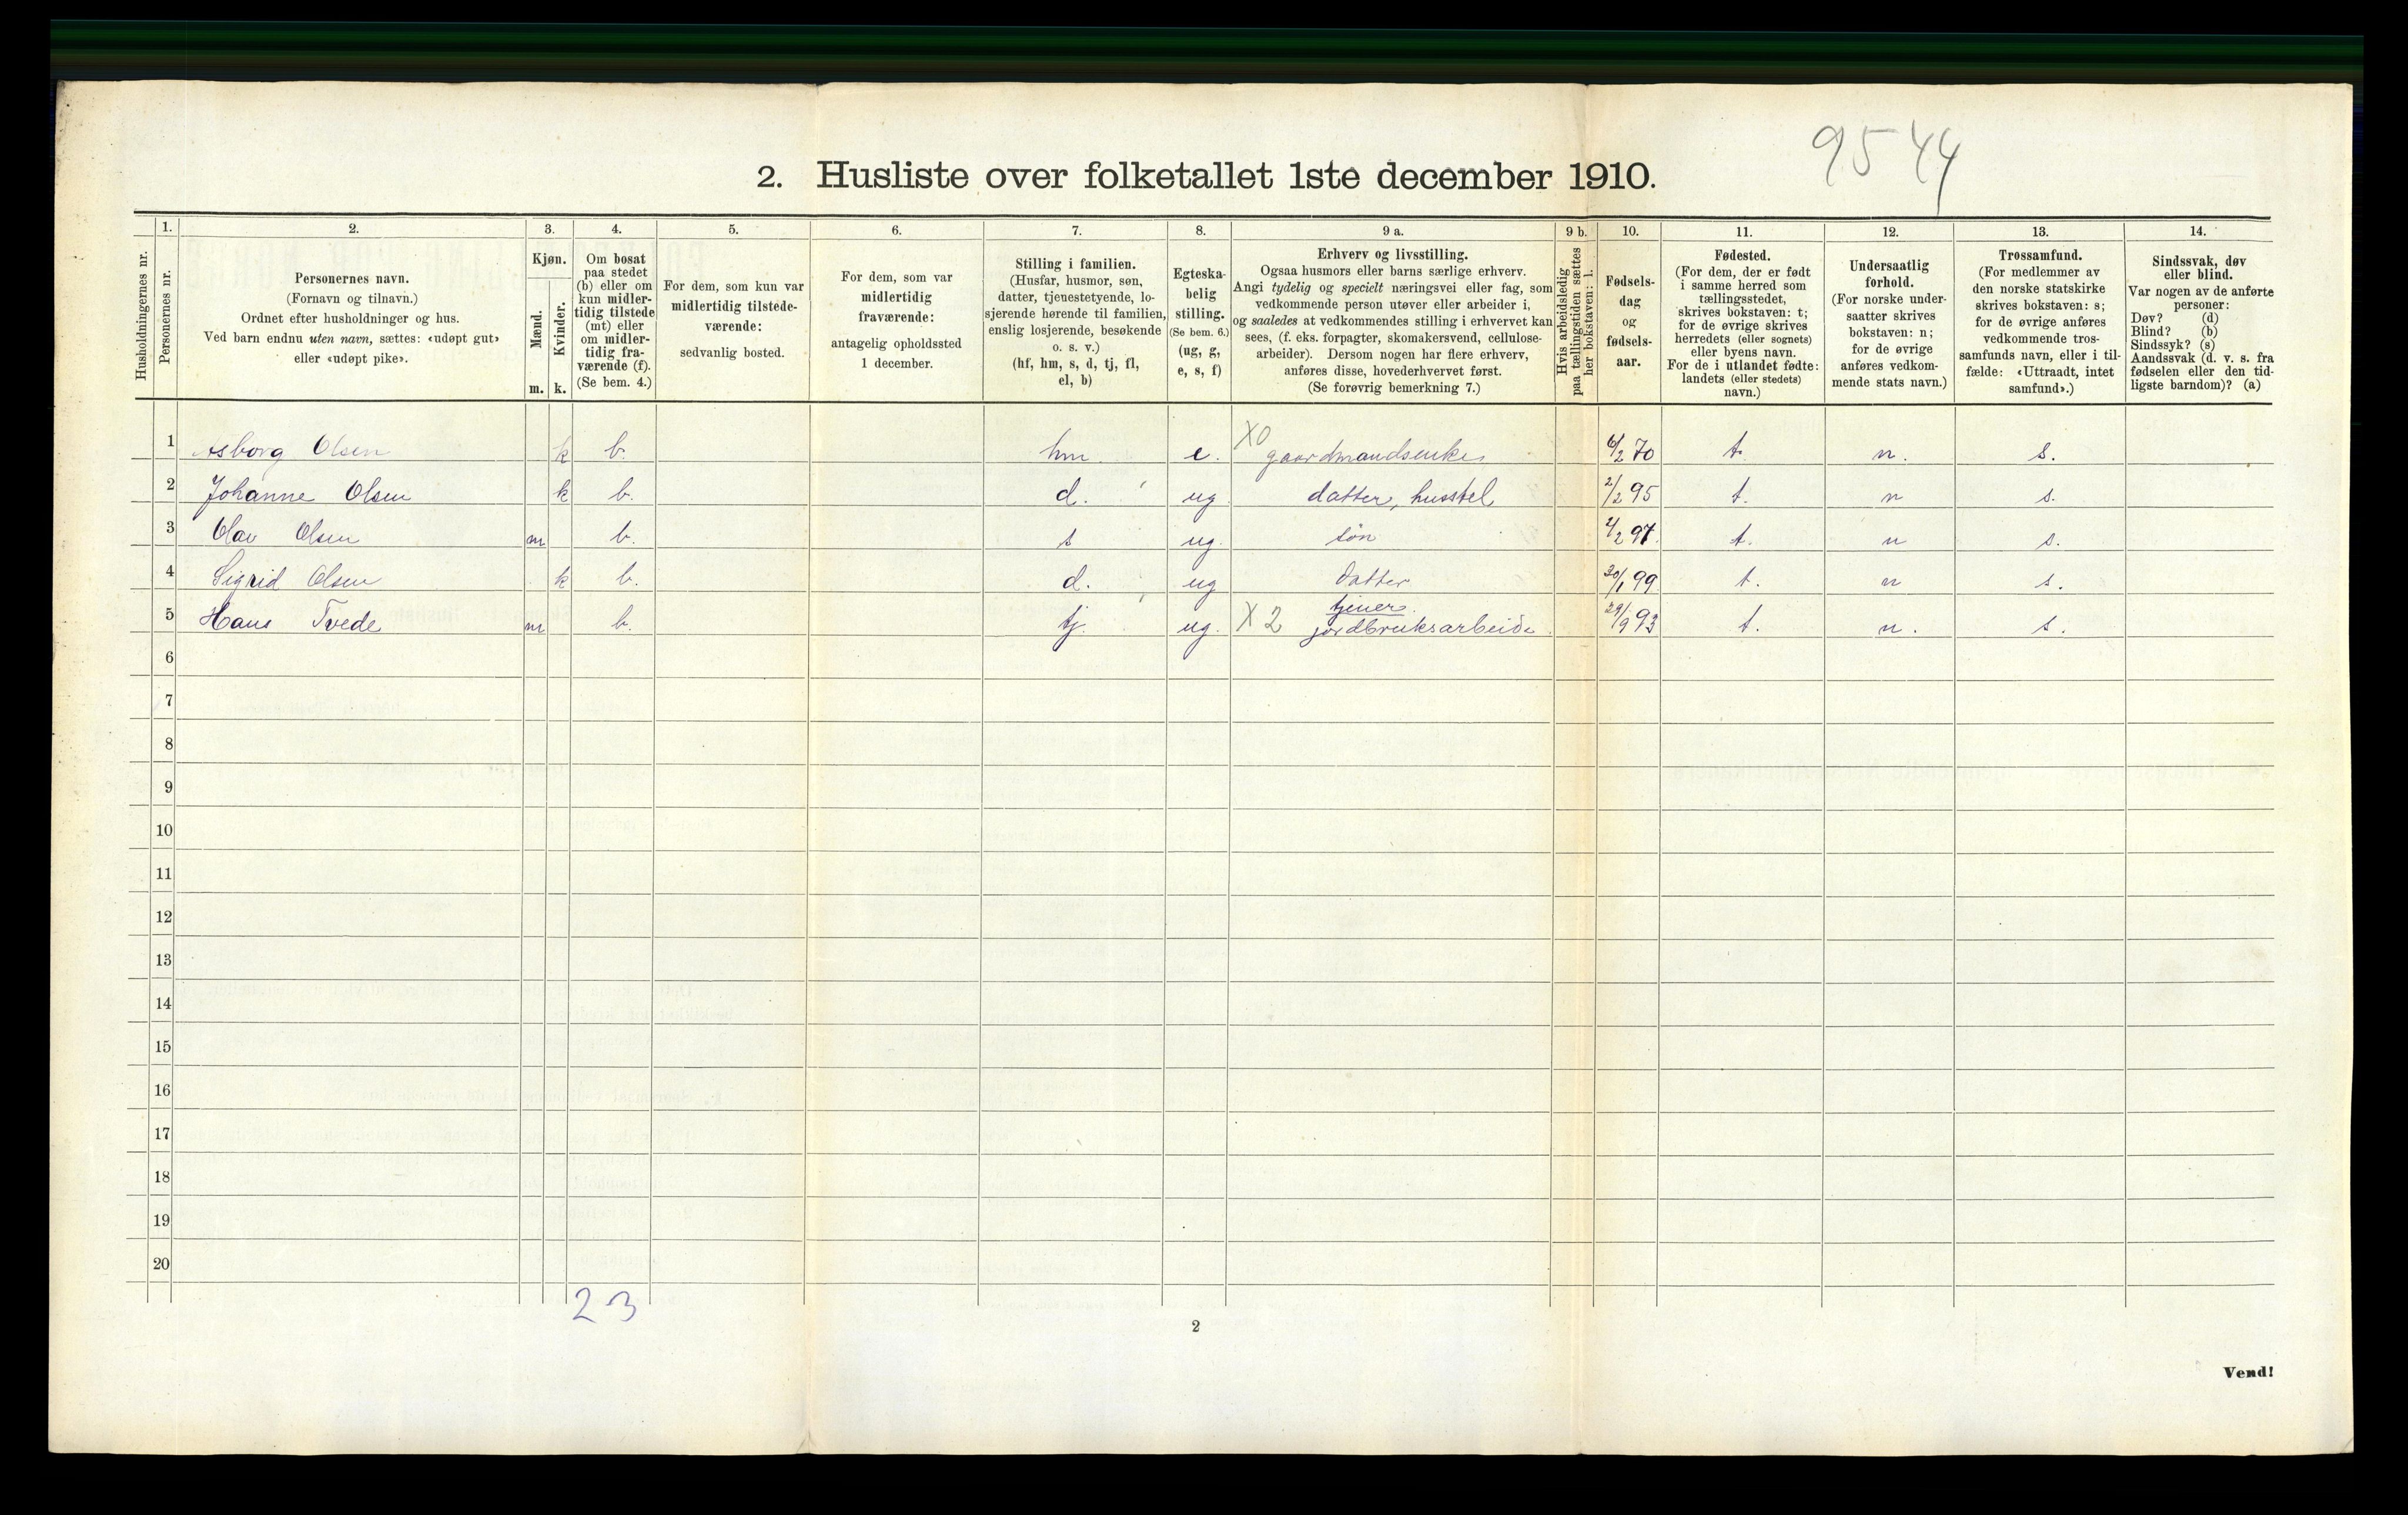 9544
2. Husliste over folketallet 1ste december 1910.
Husholdningernes nr.
1.
Personernes nr.
2.
Personernes navn.
(Fornavn og tilnavn.)
Ordnet efter husholdninger og hus.
Ved barn endnu uten navn, sættes: «udøpt gut»
eller «udøpt pike».
3.
Kjøn.
Mænd.
m.
Kvinder.
k.
4.
Om bosat
paa stedet
(b) eller om
kun midler-
tidig tilstede
(mt) eller
om midler-
tidig fra-
værende (f).
(Se bem. 4.)
5.
For dem, som kun var
midlertidig tilstede-
værende:
sedvanlig bosted.
6.
For dem, som var
midlertidig
fraværende:
antagelig opholdssted
1 december.
7.
Stilling i familien.
(Husfar, husmor, søn,
datter, tjenestetyende, lo-
sjerende hørende til familien,
enslig losjerende, besøkende
o. s. v.)
(hf, hm, s, d, tj, fl,
el, b)
8.
Egteska-
belig
stilling.
(Se bem. 6.)
(ug, g,
e, s, f)
9 a.
Erhverv og livsstilling.
Ogsaa husmors eller barns særlige erhverv.
Angi tydelig og specielt næringsvei eller fag, som
vedkommende person utøver eller arbeider i,
og saaledes at vedkommendes stilling i erhvervet kan
sees, (f. eks. forpagter, skomakersvend, cellulose-
arbeider). Dersom nogen har flere erhverv,
anføres disse, hovederhvervet først.
(Se forøvrig bemerkning 7.)
9 b.
Hvis arbeidsledig
paa tællingstiden sættes
her bokstaven: l.
10.
Fødsels-
dag
og
fødsels-
aar.
11.
Fødested.
(For dem, der er født
i samme herred som
tællingsstedet,
skrives bokstaven: t;
for de øvrige skrives
herredets (eller sognets)
eller byens navn.
For de i utlandet fødte:
landets (eller stedets)
navn.)
12.
Undersaatlig
forhold.
(For norske under-
saatter skrives
bokstaven: n;
for de øvrige
anføres vedkom-
mende stats navn.)
13.
Trossamfund.
(For medlemmer av
den norske statskirke
skrives bokstaven: s;
for de øvrige anføres
vedkommende tros-
samfunds navn, eller i til-
fælde: «Uttraadt, intet
samfund».)
14.
Sindssvak, døv
eller blind.
Var nogen av de anførte
personer:
Døv? (d)
Blind? (b)
Sindssyk? (s)
Aandssvak (d. v. s. fra
fødselen eller den tid-
ligste barndom)? (a)
1 Asborg Olsen k b. hm. e. X0 gaardmandsenke 6/2 70 t. n. s.
2 Johanne Olsen k b. d. ug datter, husstel 2/2 95 t. n s.
3 Olav Olsen m b. s ug. søn 2/2 97. t. n s.
4 Sigrid Olsen k b. d. ug datter 30/1 99. t. n s.
5 Hans Tvede m b. tj. ug. X2 tjener. jordbruksarbeide. 29/9 93 t. n. s.
6
7
8
9
10
11
12
13
14
15
16
17
18
19
20
2 3
2
Vend!